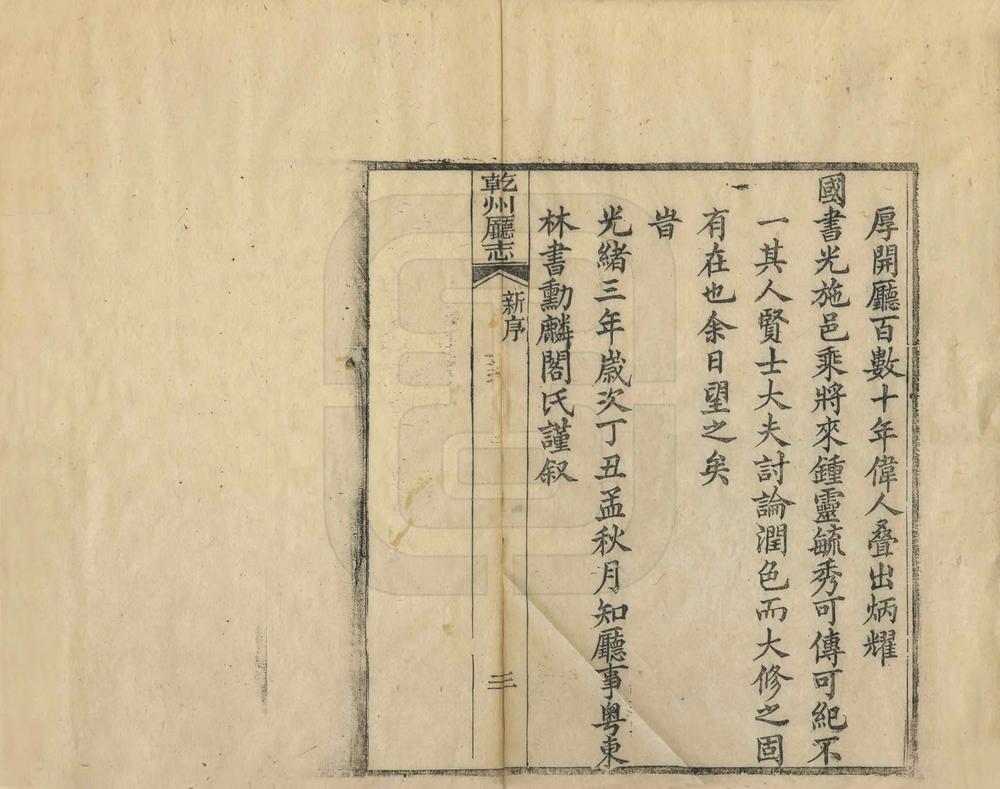 厚開廳百數十年偉人叠出炳耀
國書光施邑乘將來鍾靈毓秀可傳可紀不
一其人賢士大夫討論潤色而大修之固
有在也余日望之矣
旹
光緒三年歲次丁丑孟秋月知廳事粤東
林書勳麟閣氏謹叙
乾州廳志
新序
三